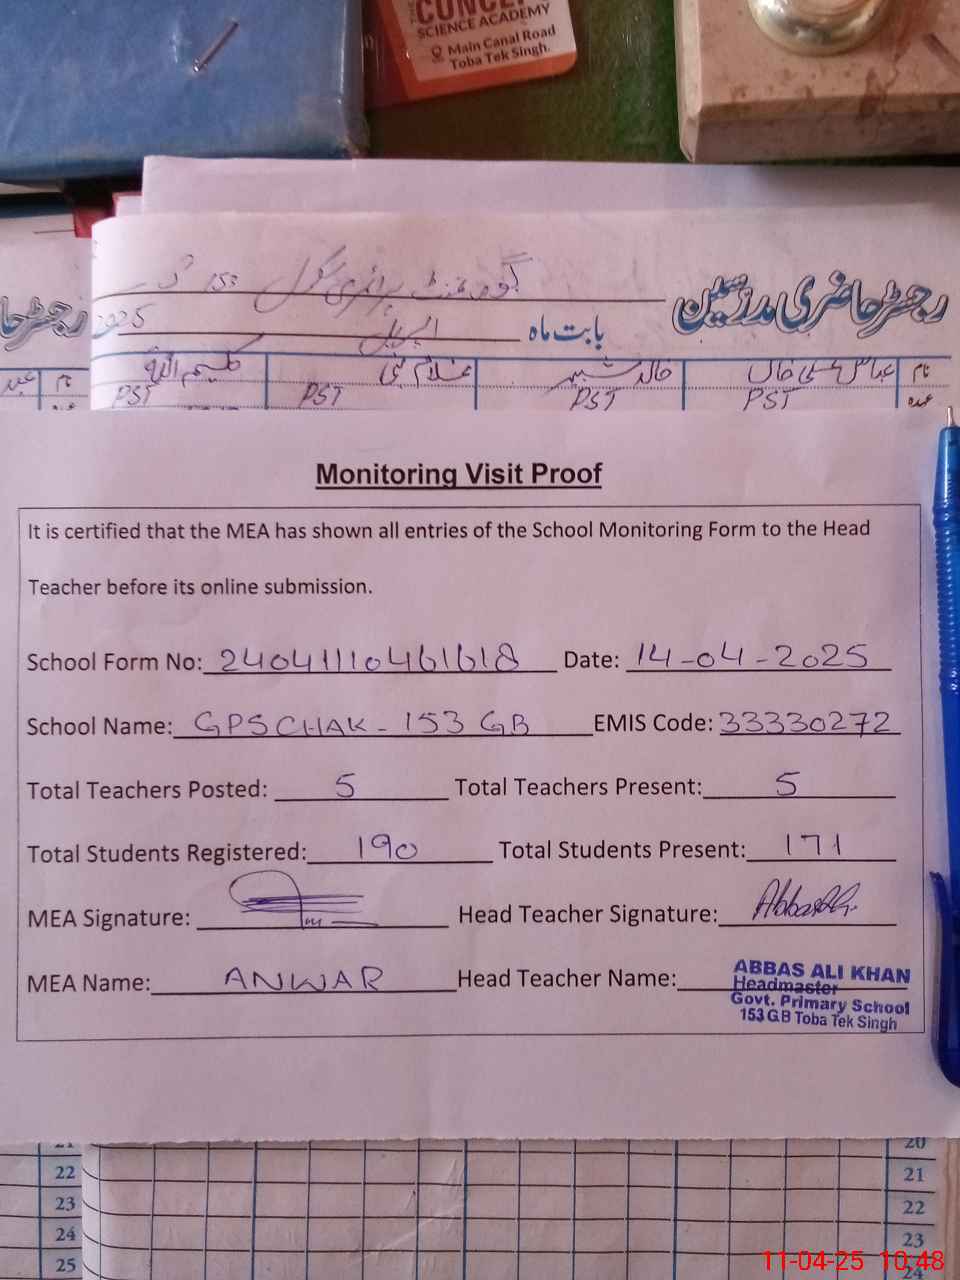 CONCEPT
SCIENCE ACADEMY
Main Canal Road
Toba Tek Singh.
رجسٹر حاضری مدرسین
گورنمنٹ پرائمری سکول 153 گ ب
بابت ماہ اپریل 2025
نام عباس علی خاں خالد غلام نبی کلیم اللہ
عہدہ PST PST PST PST
Monitoring Visit Proof
It is certified that the MEA has shown all entries of the School Monitoring Form to the Head
Teacher before its online submission.
School Form No: 24041110461618 Date: 14-04-2025
School Name: GPS CHAK - 153 GB EMIS Code: 33330272
Total Teachers Posted: 5 Total Teachers Present: 5
Total Students Registered: 190 Total Students Present: 171
MEA Signature: Head Teacher Signature:
MEA Name: ANWAR Head Teacher Name: ABBAS ALI KHAN
Headmaster
Govt. Primary School
153 GB Toba Tek Singh
21 20
22 21
23 22
24 23
25 24
11-04-25 10:48